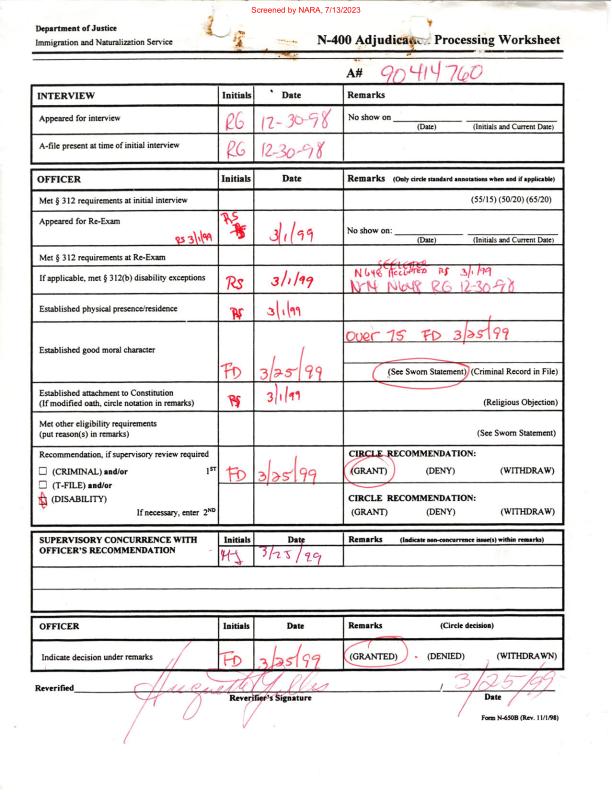 Screened by NARA, 7/13/2023
Department of Justice
Immigration and Naturalization Service
N-400 Adjudication Processing Worksheet
A# 90414760
INTERVIEW Initials Date Remarks
Appeared for interview RG 12-30-98 No show on
(Date) (Initials and Current Date)
A-file present at time of initial interview RG 12-30-98
OFFICER Initials Date Remarks (Only circle standard annotations when and if applicable)
Met § 312 requirements at initial interview (55/15) (50/20) (65/20)
Appeared for Re-Exam RS 3/1/99 RS 3/1/99 No show on:
(Date) (Initials and Current Date)
Met § 312 requirements at Re-Exam
If applicable, met § 312(b) disability exceptions RS 3/1/99 N648 Accepted RS 3/1/99
N-14 N648 RG 12-30-98
Established physical presence/residence RS 3/1/99
Over 75 FD 3/25/99
Established good moral character FD 3/25/99 (See Sworn Statement) (Criminal Record in File)
Established attachment to Constitution RS 3/1/99
(If modified oath, circle notation in remarks) (Religious Objection)
Met other eligibility requirements
(put reason(s) in remarks) (See Sworn Statement)
Recommendation, if supervisory review required CIRCLE RECOMMENDATION:
(CRIMINAL) and/or 1ST FD 3/25/99 (GRANT) (DENY) (WITHDRAW)
(T-FILE) and/or
(DISABILITY) CIRCLE RECOMMENDATION:
If necessary, enter 2ND (GRANT) (DENY) (WITHDRAW)
SUPERVISORY CONCURRENCE WITH Initials Date Remarks (Indicate non-concurrence issue(s) within remarks)
OFFICER'S RECOMMENDATION 3/25/99
OFFICER Initials Date Remarks (Circle decision)
Indicate decision under remarks FD 3/25/99 (GRANTED) (DENIED) (WITHDRAWN)
Reverified / 3/25/99
Reverifier's Signature Date
Form N-650B (Rev. 11/1/98)